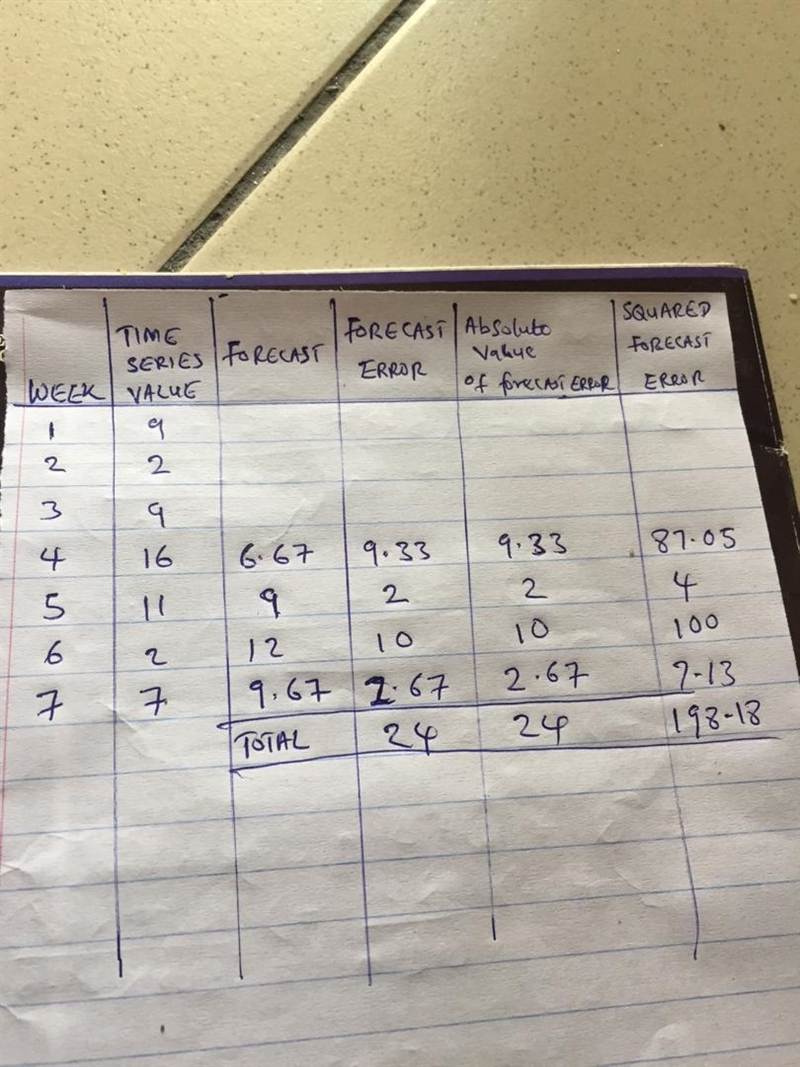 WEEK TIME SERIES VALUE FORECAST FORECAST ERROR Absolute Value of forecast ERROR SQUARED FORECAST ERROR
1 9
2 2
3 9
4 16 6.67 9.33 9.33 87.05
5 11 9 2 2 4
6 2 12 10 10 100
7 7 9.67 2.67 2.67 7.13
TOTAL 24 24 198.18